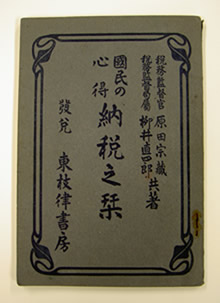 税務監督官 原田宗蔵
税務監督局属 柳井直四郎
共著
國民の
心得
納税之栞
發兌 東枝律書房